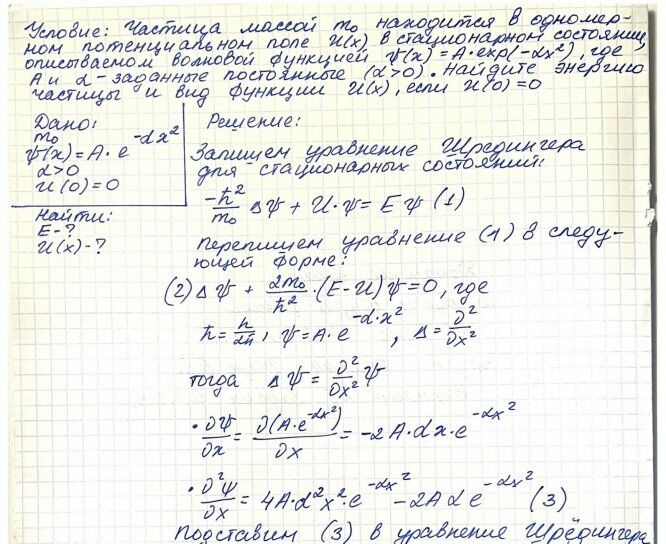 Условие: Частица массой m₀ находится в одномер-
ном потенциальном поле U(x) в стационарном состоянии,
описываемом волновой функцией ψ(x) = A·exp(-αx²), где
A и α - заданные постоянные (α>0). Найдите энергию
частицы и вид функции U(x), если U(0)=0
Дано:
m₀
ψ(x) = A·e^{-αx²}
α>0
U(0)=0
Найти:
E-?
U(x)-?
Решение:
Запишем уравнение Шрёдингера
для стационарных состояний:
-ħ²/m₀ Δψ + U·ψ = Eψ (1)
Перепишем уравнение (1) в следу-
ющей форме:
(2) Δψ + 2m₀/ħ² ·(E-U)ψ=0, где
ħ = h/2π, ψ = A·e^{-α·x²}, Δ = ∂²/∂x²
тогда Δψ = ∂²/∂x² ψ
· ∂ψ/∂x = ∂(A·e^{-αx²})/∂x = -2A·αx·e^{-αx²}
· ∂²ψ/∂x = 4A·α²x²·e^{-αx²} - 2Aαe^{-αx²} (3)
Подставим (3) в уравнение Шрёдингера